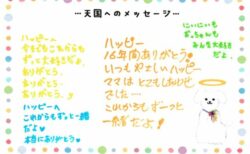 …天国へのメッセージ…
ハッピーへ
今までもこれからも
ずっと大好きだよ。
ありがとう。
ありがとう。
ありがとう。
ハッピーへ
これからもずっと一緒
だよ♡
本当にありがとう♡
ハッピー
16年間ありがとう
いつもやさしいハッピー
ママは とてもしあわせ
でした…
これからも ずーっと
一緒だよ!
にぃにぃも
みんな大好き
だよ